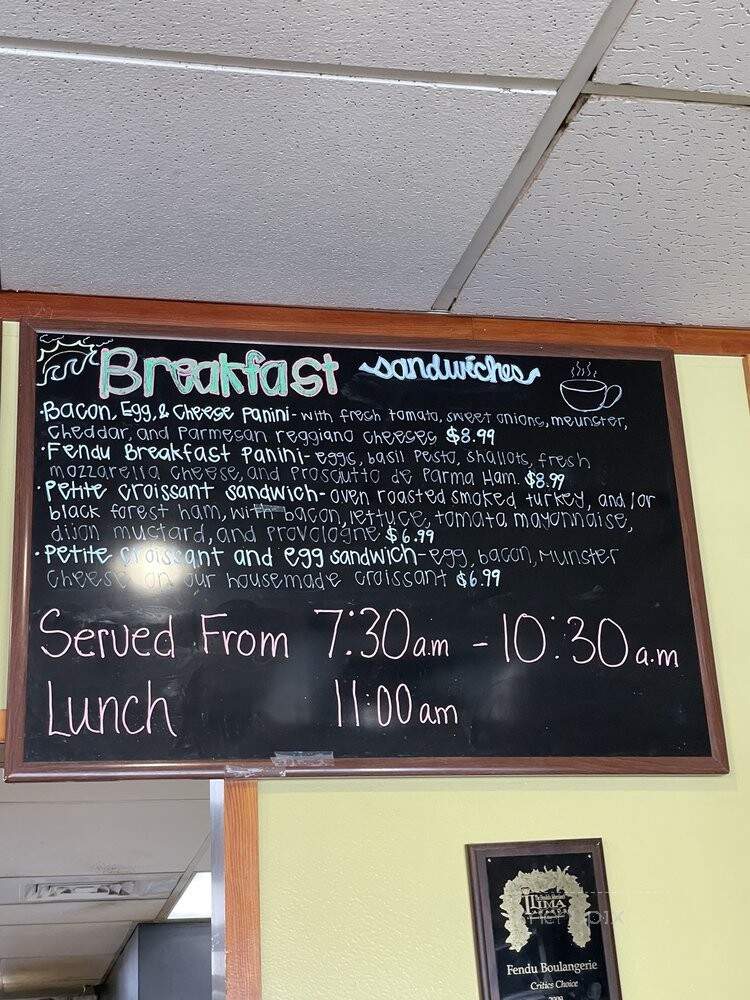 Breakfast sandwiches
•Bacon, Egg, & Cheese Panini- with fresh tomato, sweet onions, meunster,
Cheddar, and Parmesan reggiano cheeses $8.99
•Fendu Breakfast Panini- eggs, basil pesto, shallots, fresh
mozzarella cheese, and Prosciutto de Parma Ham. $8.99
•Petite croissant sandwich- oven roasted smoked turkey, and/or
black forest ham, with bacon, lettuce, tomato, mayonnaise,
dijon mustard, and Provologne $6.99
•Petite croissant and egg sandwich- egg, bacon, Munster
cheese on our housemade croissant $6.99
Served From 7:30a.m - 10:30a.m
Lunch 11:00am
LIMA
Fendu Boulangerie
Critics Choice